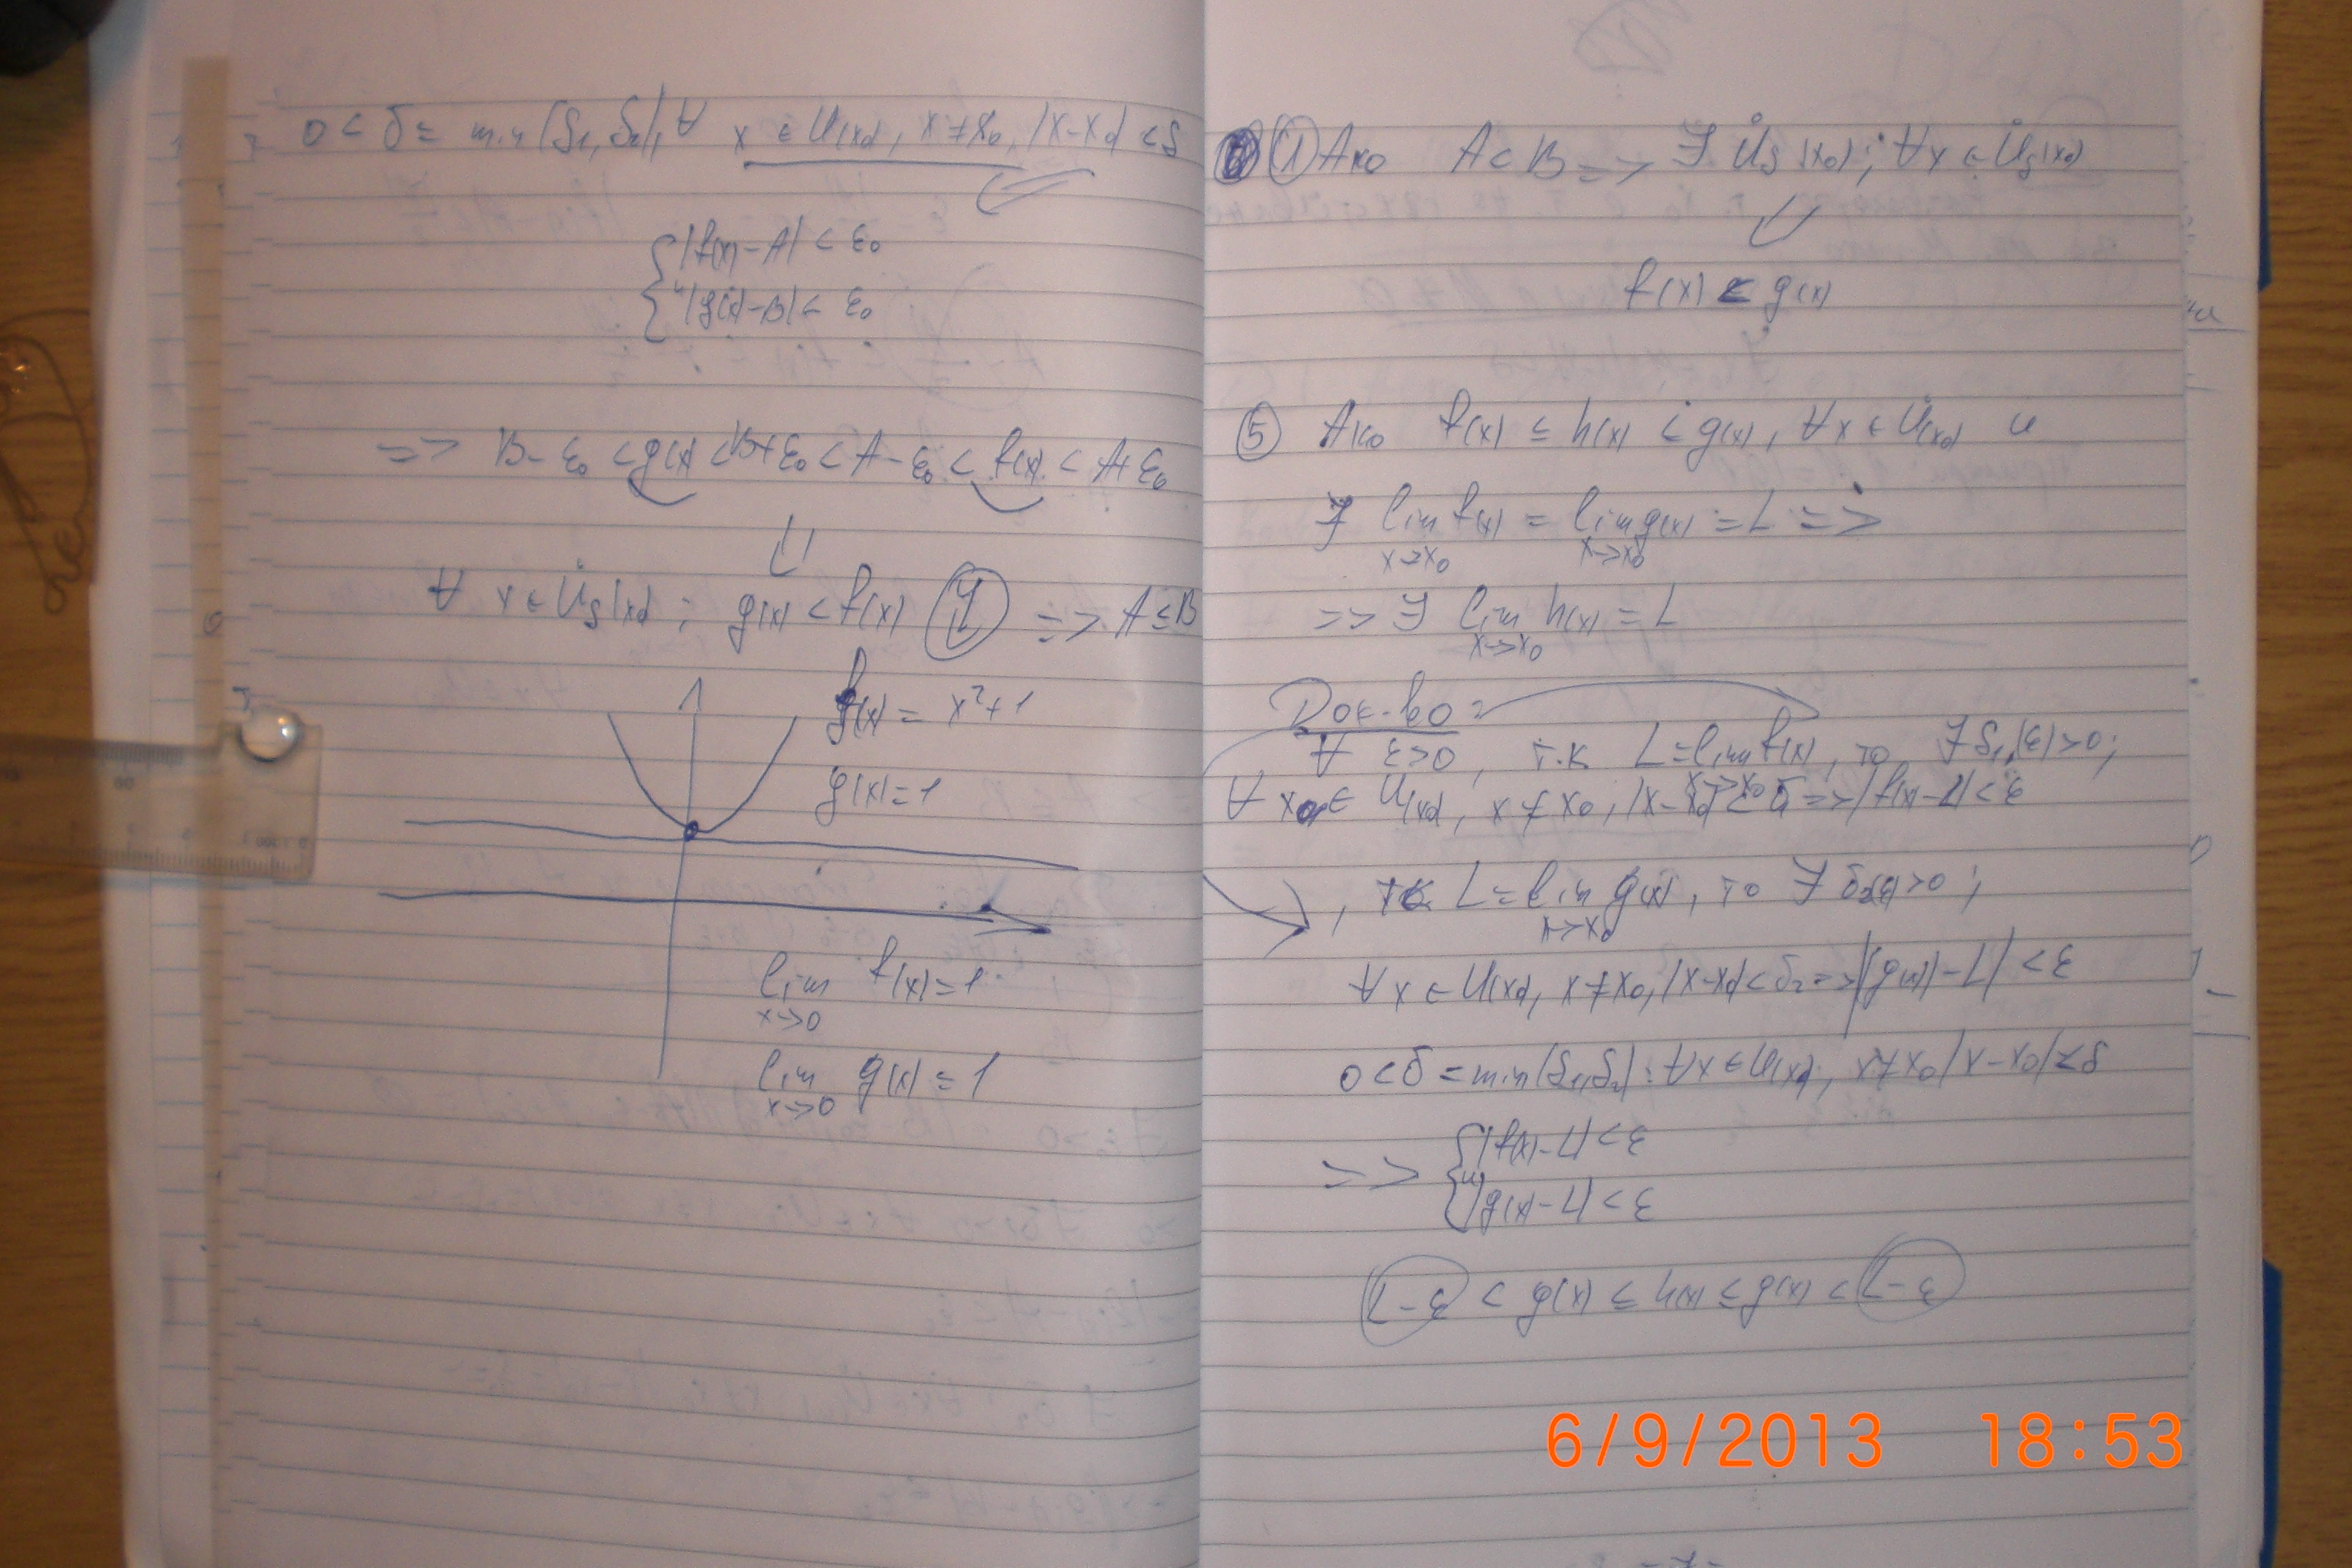 0 < δ = min(δ₁, δ₂), ∀ x ∈ U(x₀), x ≠ x₀, |x-x₀| < δ
{ |f(x) - A| < ε₀
и |g(x) - B| < ε₀
=> B - ε₀ < g(x) < B + ε₀ < A - ε₀ < f(x) < A + ε₀
∀ x ∈ U̇δ(x₀) ; g(x) < f(x) => A ≤ B
f(x) = x² + 1
g(x) = 1
lim f(x) = 1
x->0
lim g(x) = 1
x->0
Ако A < B => ∃ U̇δ(x₀) ; ∀x ∈ U̇δ(x₀)
f(x) < g(x)
⑤ Ако f(x) ≤ h(x) ≤ g(x), ∀x ∈ U̇(x₀) и
∃ lim f(x) = lim g(x) = L =>
x->x₀ x->x₀
=> ∃ lim h(x) = L
x->x₀
Док-во
∀ ε>0, т.к L = lim f(x), то ∃ δ₁(ε)>0;
x->x₀
∀ x ∈ U(x₀), x ≠ x₀, |x-x₀| < δ₁ => |f(x) - L| < ε
, т.к. L = lim g(x), то ∃ δ₂(ε)>0 ;
x->x₀
∀ x ∈ U(x₀), x ≠ x₀, |x-x₀| < δ₂ => |g(x) - L| < ε
0 < δ = min(δ₁, δ₂) : ∀x ∈ U(x₀), x ≠ x₀ |x-x₀| < δ
=> { |f(x) - L| < ε
и |g(x) - L| < ε
L - ε < g(x) ≤ h(x) ≤ g(x) < L - ε
6/9/2013 18:53